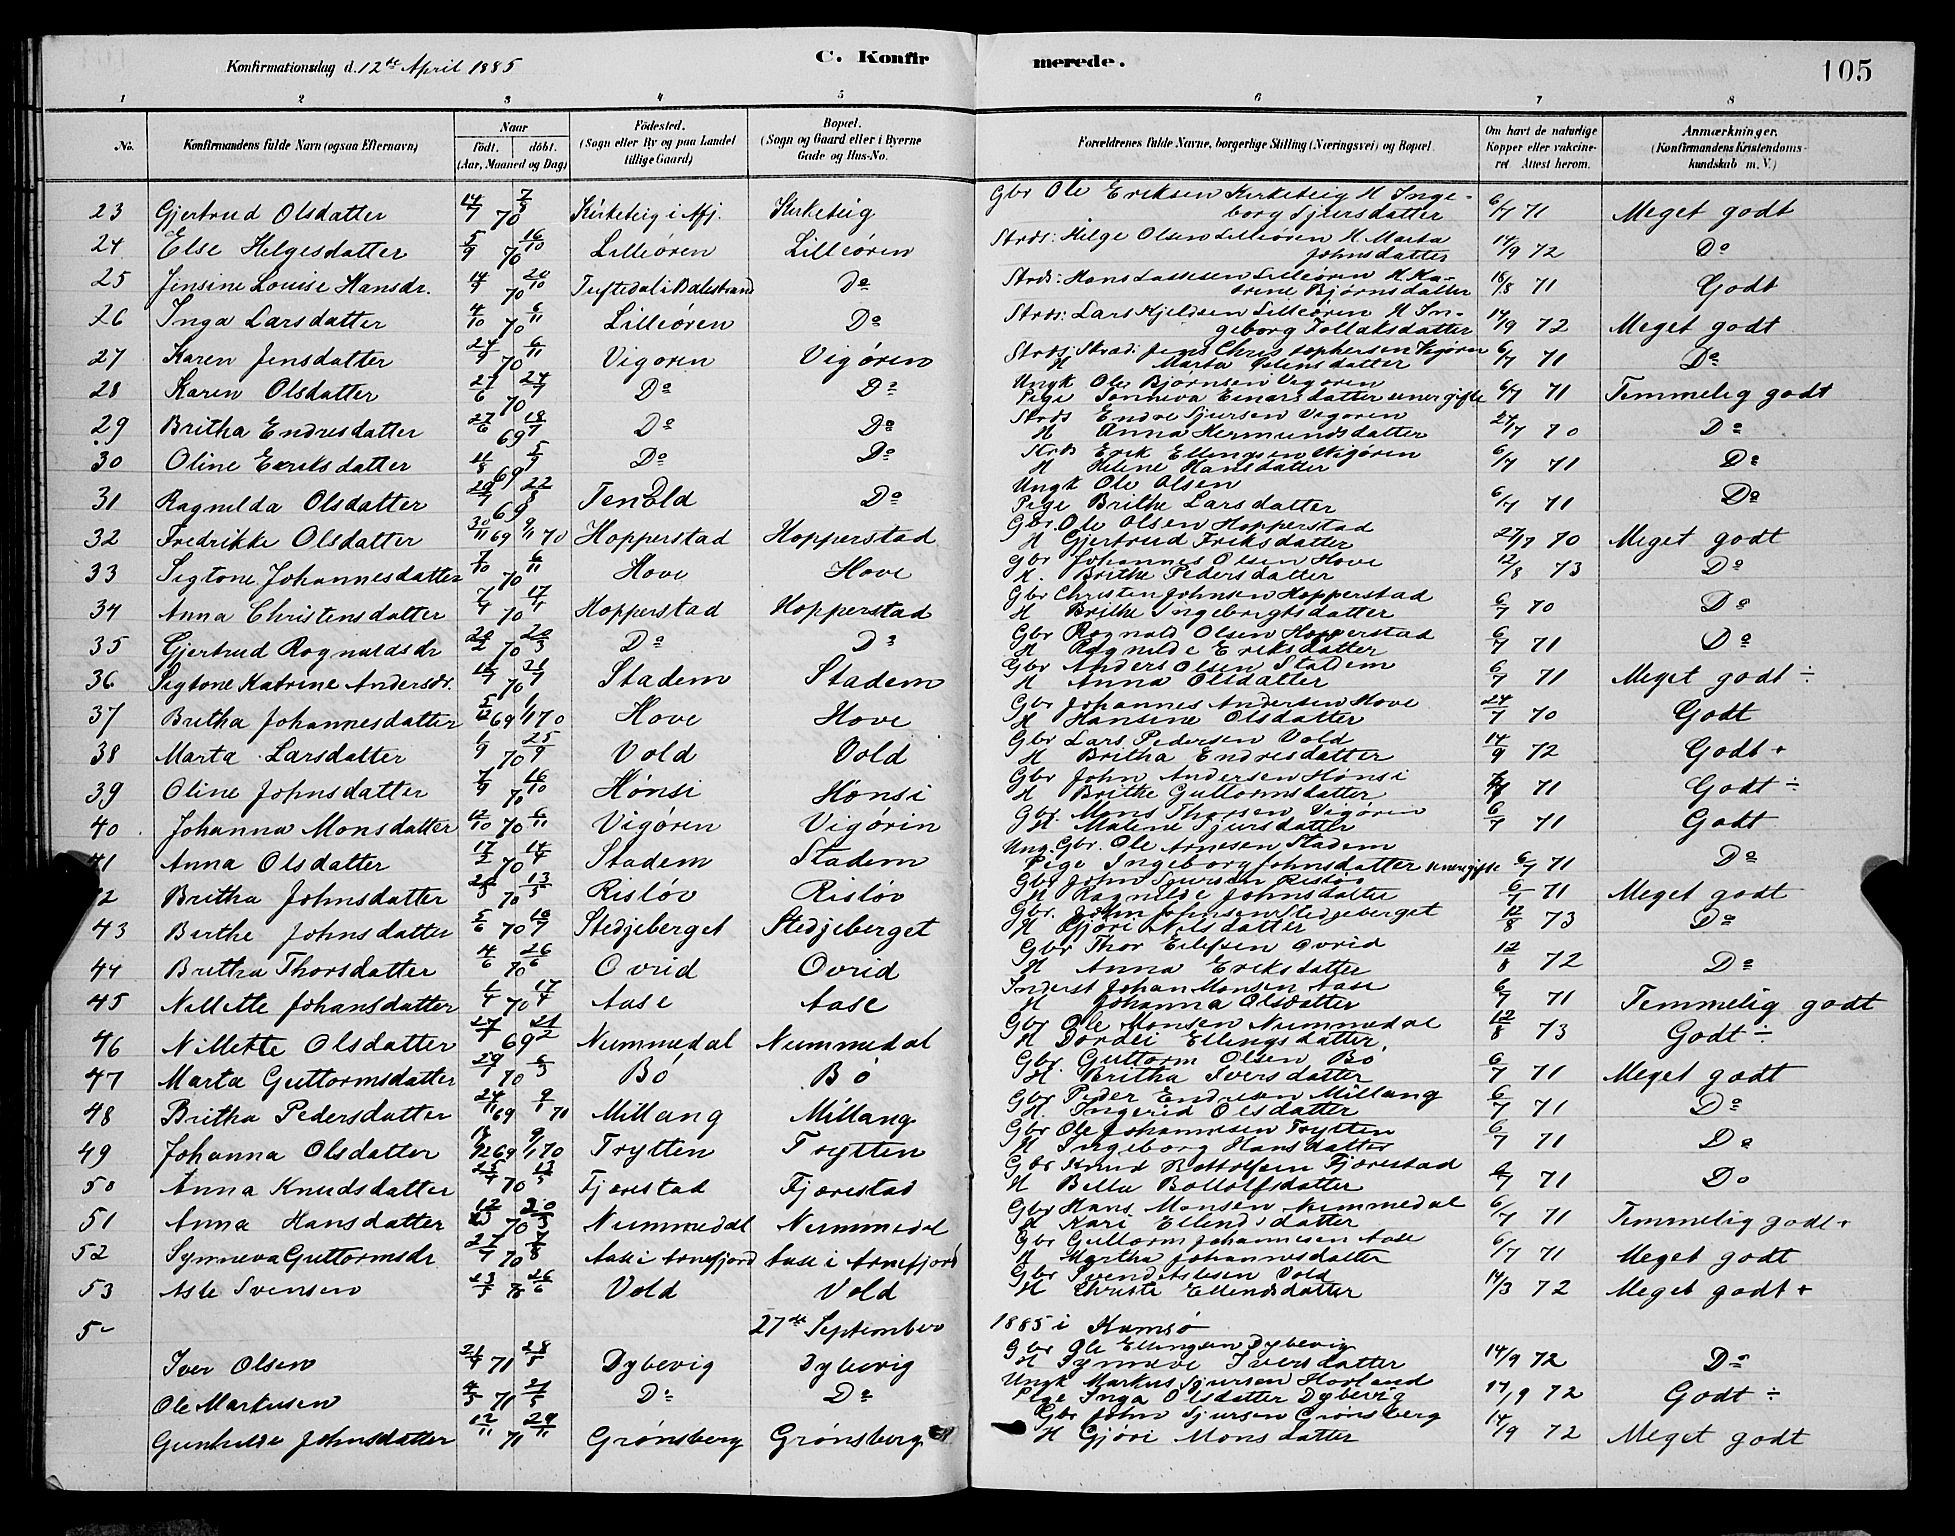 Konfirmationsdag d. 12te April 1885
C. Konfirmerede.
105
1 2 3 4 5 6 7 8
No. Konfirmandens fulde Navn (ogsaa Efternavn) Naar født. døbt. (Aar, Maaned og Dag) Födested. (Sogn eller By og paa Landet tillige Gaard) Bopæl. (Sogn og Gaard eller i Byerne Gade og Hus-No. Forældrenes fulde Navne, borgerlige Stilling (Næringsvei) og Bopæl. Om havt de naturlige Kopper eller vakcineret Attest herom. Anmærkninger. (Konfirmandens Kristendomskundskab m. V.)
23 Gjertrud Olsdatter 14/7 70 7/8 Kirketeig Kirketeig Gbr Ole Eriksen Kirketeig H Ingeborg Sjursdatter 6/7 71 Meget godt
24 Else Helgesdatter 5/9 70 16/10 Lilleören Lilleören Strds: Helge Olsen Lilleören H. Marta Johnsdatter 14/9 72 Do
25 Jensine Louise Hansdr. 14/9 70 20/10 Tuftedal i Balestrand Do Strds: Hans Lassesen Lilleören H Katrine Bjørnsdatter 18/8 71 Godt
26 Inga Larsdatter 4/10 70 6/11 Lilleören Do Strds: Lars Kjeldsen Lilleören H Ingeborg Tollaksdatter 14/9 72 Meget godt
27 Karen Jensdatter 70 6/11 Vigoren Vigören Strds: Jens Christophersen Vigøren H Marta 6/7 71 Do
28 Karen Olsdatter 21/6 70 24/7 Do Do Ungk Ole Bjørnsen Vigøren Pige Sonneva Einarsdatter 6/7 71 Temmelig godt
29 Britha Endresdatter 27/6 69 18/7 Do Do Strds Endre Sjursen Vigoren H Anna Hermundsdatter 24/7 70 Do
30 Oline Eriksdatter 69 Do Do Strds Erik Ellingsen Vigøren H Helene Hansdatter 6/7 71 Do
31 Ragnilda Olsdatter 69 22/8 Tenold Do Ungk Ole Olsen Pige Brithe Larsdatter 6/7 71 Do
32 Fredrikke Olsdatter 30/11 69 9/1 70 Hopperstad Hopperstad Gbr. Ole Olsen Hopperstad H Gjertrud Eriksdatter 24/7 70 Meget godt
33 Sigtone Johannesdatter 7/10 70 6/11 Hove Hove Gbr Johannes Olsen Hove H. Brithe Pedersdatter 12/8 73 Do
34 Anna Christensdatter 7/4 70 17/4 Hopperstad Hopperstad Gbr Christen Johnsen Hopperstad H Brithe Ingebrigtsdatter 6/7 70 Do
35 Gjertrud Rognaldsdr 20/2 70 20/3 Do Do Gbr Rognald Olsen Hopperstad H Ragnilde Eriksdatter 6/7 71 Do
36 Sigtone Katrine Andersdr. 70 Stadem Stadem Gbr Anders Olsen Stadem H Anna Olsdatter 6/7 71 Meget godt ÷
37 Britha Johannesdatter 5/12 69 1/1 70 Hove Hove Gbr Johannes Andersen Hove H Hansine Olsdatter 24/7 70 Godt
38 Marta Larsdatter 1/9 70 25/9 Vold Vold Gbr Lars Pedersen Vold H Britha Endresdatter 14/9 72 Godt +
39 Oline Johnsdatter 7/9 70 16/10 Hónsi Hónsi Gbr John Andersen Hónsi H Brithe Guttormsdatter 71 Godt ÷
40 Johanna Monsdatter 70 6/11 Vigóren Vigórin Gbr. Mons Thorsen Vigóren H Malene Sjursdatter 6/7 71 Godt
41 Anna Olsdatter 17/2 70 14/4 Stadem Stadem Ung. Gbr. Ole Arnesen Stadem Pige Ingeborg Johnsdatter 6/7 71 Do
42 Britha Johnsdatter 70 13/5 Rislóv Rislóv Gbr John Sjursen Rislóv H Ragnilde Johnsdatter 6/7 71 Meget godt
43 Berthe Johnsdatter 5/6 70 10/7 Stedjeberget Stedjeberget Gbr. John Johnsen Stedjeberget H Gjöri Nilsdatter 12/8 73 Do
44 Britha Thorsdatter 4/6 70 26/6 Ovrid Ovrid Gbr Thor Eilefsen Ovrid H Anna Eriksdatter 12/8 72 Do
45 Nillette Johansdatter 1/4 70 17/4 Aase Aase Inderst Johan Monsen Aase H Johanna Olsdatter 6/7 71 Temmelig godt
46 Nillette Olsdatter 69 21/2 Nummedal Nummedal Gbr Ole Monsen Nummedal H Dordei Ellingsdatter 12/8 73 Godt ÷
47 Marta Guttormsdatter 70 Bó Bó Gbr Guttorm Olsen Bó H Britha Iversdatter 6/7 71 Meget godt
48 Britha Pedersdatter 24/11 69 9/1 70 Millang Millang Gbr Peder Endresen Millang H. Ingerid Olsdatter 6/7 71 Do
49 Johanna Olsdatter 12 69 9/1 70 Trytten Trytten Gbr Ole Johannesen Trytten H Ingeborg Hansdatter 6/7 71 Do
50 Anna Knudsdatter 25/4 70 13/5 Fjærestad Fjærestad Gbr Knud Bottolfsen Fjærestad H Bella Bottolfsdatter 71 Do
51 Anna Hansdatter 70 20/3 Nummedal Nummedal Gbr Hans Monsen Nummedal H Kari Ellendsdatter 6/7 71 Temmelig godt +
52 Synneva Guttormsdr 70 7/8 Aase i Arnefjord Aase i Arnefjord Gbr Guttorm Johannesen Aase H Martha Johannesdatter 6/7 71 Meget godt
53 Asle Svensen 23/5 70 26/6 Vold Vold Gbr Svend Aslesen Vold H Christi Ellendsdatter 14/3 72 Meget godt +
5 27de September 1885 i Kamsø
Iver Olsen 21/4 71 28/5 Dybevig Dybevig Gbr Ole Ellingsen Dybevig H Synneve Iversdatter 14/9 72 Do
Ole Markusen 4/5 71 21/5 Do Do Ungk Markus Sjursen Hovland Pige Inga Olsdatter Dybevig 14/9 72 Godt ÷
Gunhilde Johnsdatter 12/11 71 29/11 Grónsberg Grónsberg Gbr John Sjursen Grónsberg H Gjöri Monsdatter 14/9 72 Meget godt